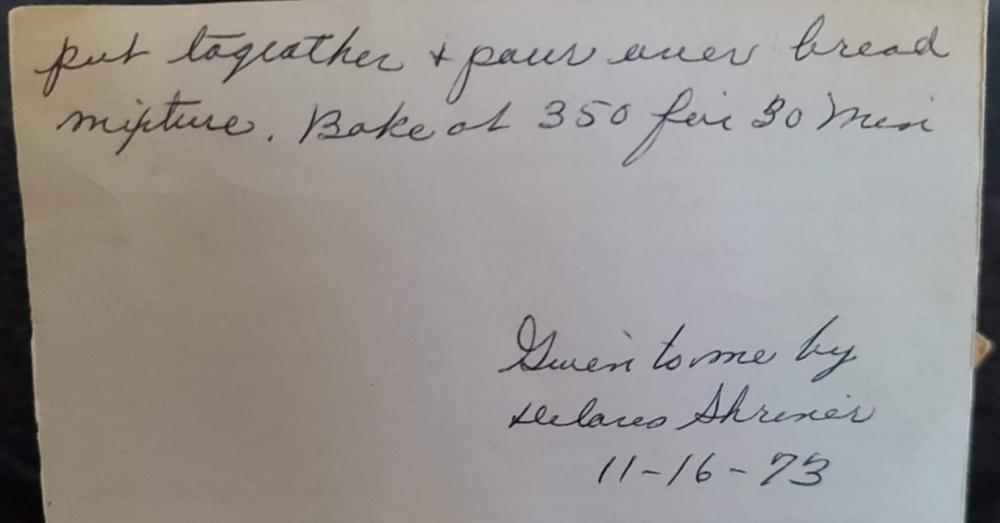 put togeather + pour over bread
mixture. Bake at 350 for 30 Min
Given to me by
Delores Shriner
11-16-73